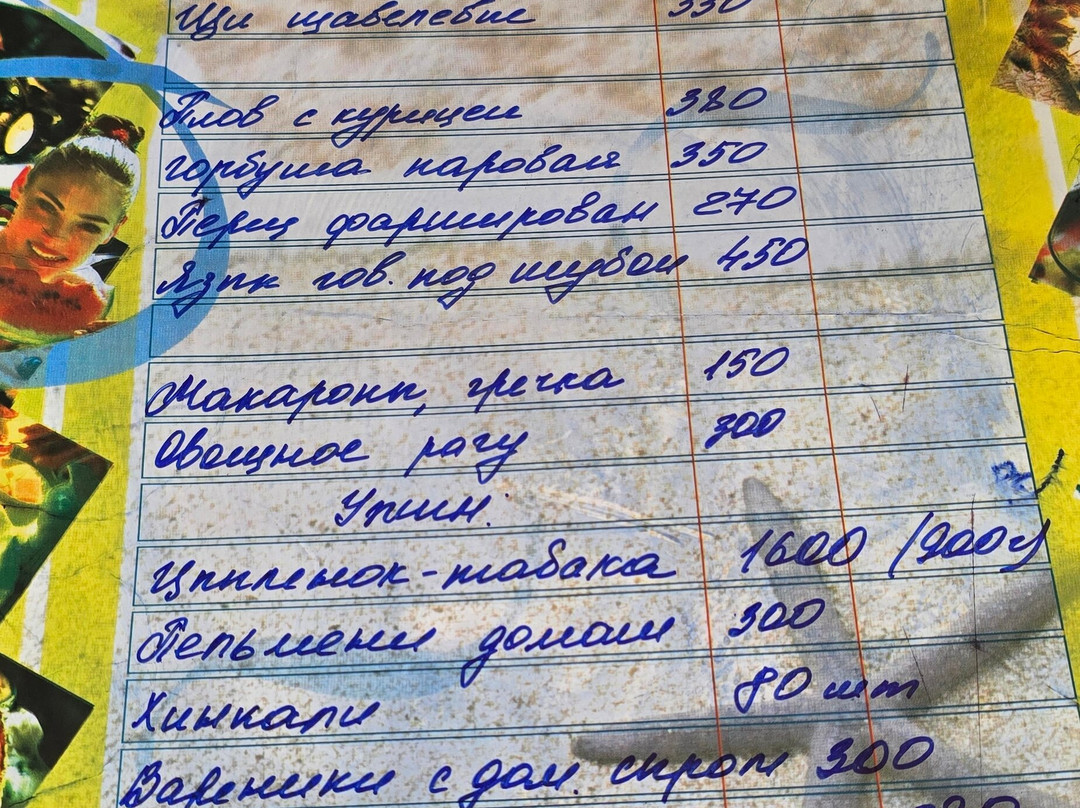 Щи щавелевые 330
Плов с курицей 380
горбуша паровая 350
Перц фарширован 270
Язык гов. под шубой 450
Макароны, гречка 150
Овощное рагу 300
Ужин:
Цыпленок-табака 1600 (900г)
Пельмени домаш 300
Хинкали 80 шт
Вареники с дом. сыром 300